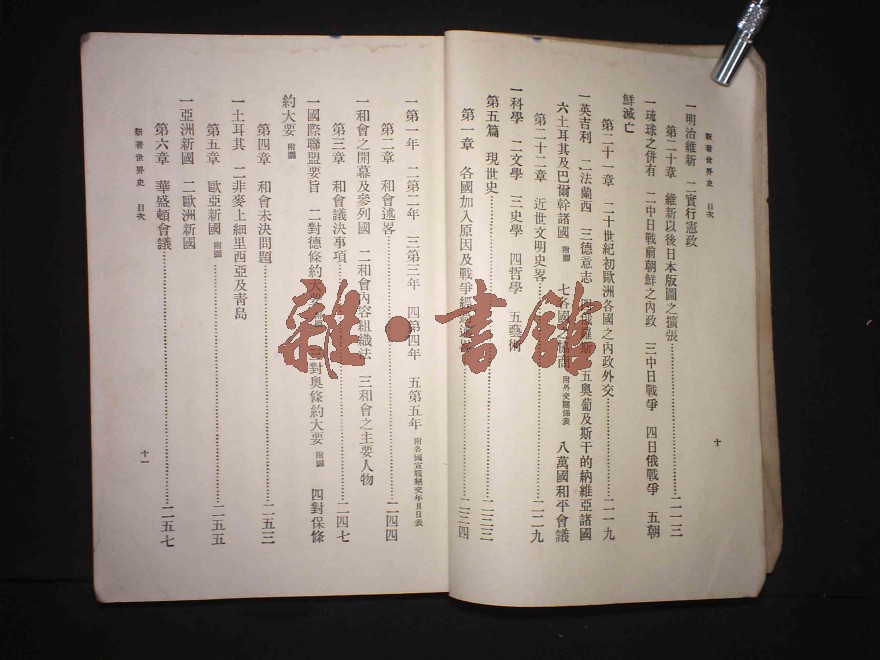 新著世界史 目次
一明治維新 二實行憲政
第二十章 維新以後日本版圖之擴張………二一三
一琉球之併有 二中日戰前朝鮮之內政 三中日戰爭 四日俄戰爭 五朝
鮮滅亡
第二十一章 二十世紀初歐洲各國之內政外交………二一九
一英吉利 二法蘭西 三德意志 四俄羅斯 五奧葡及斯干的納維亞諸國
六土耳其及巴爾幹諸國 附圖 七各國之協商 附外交關係表 八萬國和平會議
第二十二章 近世文明史畧………二二九
一科學 二文學 三史學 四哲學 五藝術
第五篇 現世史………二三三
第一章 各國加入原因及戰爭經過
………二三四
十
一第一年 二第二年 三第三年 四第四年 五第五年 附各國宣戰絕交年月日表
第二章 和會述畧………二四四
一和會之開幕及參列國 二和會內容組織法 三和會之主要人物
第三章 和會議決事項………二四七
一國際聯盟要旨 二對德條約大要 附圖 三對奧條約大要 附圖 四對保條
約大要 附圖
第四章 和會未決問題………二五三
一土耳其 二非麥上細里西亞及靑島
第五章 歐亞新國 附圖………二五五
一亞洲新國 二歐洲新國
第六章 華盛頓會議………二五七
新著世界史 目次
十一
雜·書館